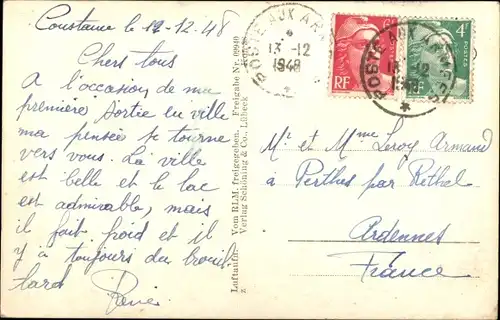 Constance le 12-12.48
Chers tous
A l'occasion de ma
première sortie en ville
ma pensée se tourne
vers vous. La ville
est belle et le lac
est admirable, mais
il fait froid et il
y a toujours du brouil
lard René
Luftaufn. Vom RLM. freigegeben. Freigabe Nr.
Verlag Schöning & Co., Lübeck
z
POSTE AUX ARMÉES
13-12
1948
*
RF
POSTES
4F
RF
POSTE AUX ARMÉES
13-12
1948
*
Mr et Mme Leroy Armand
à Perthes par Rethel
Ardennes
France